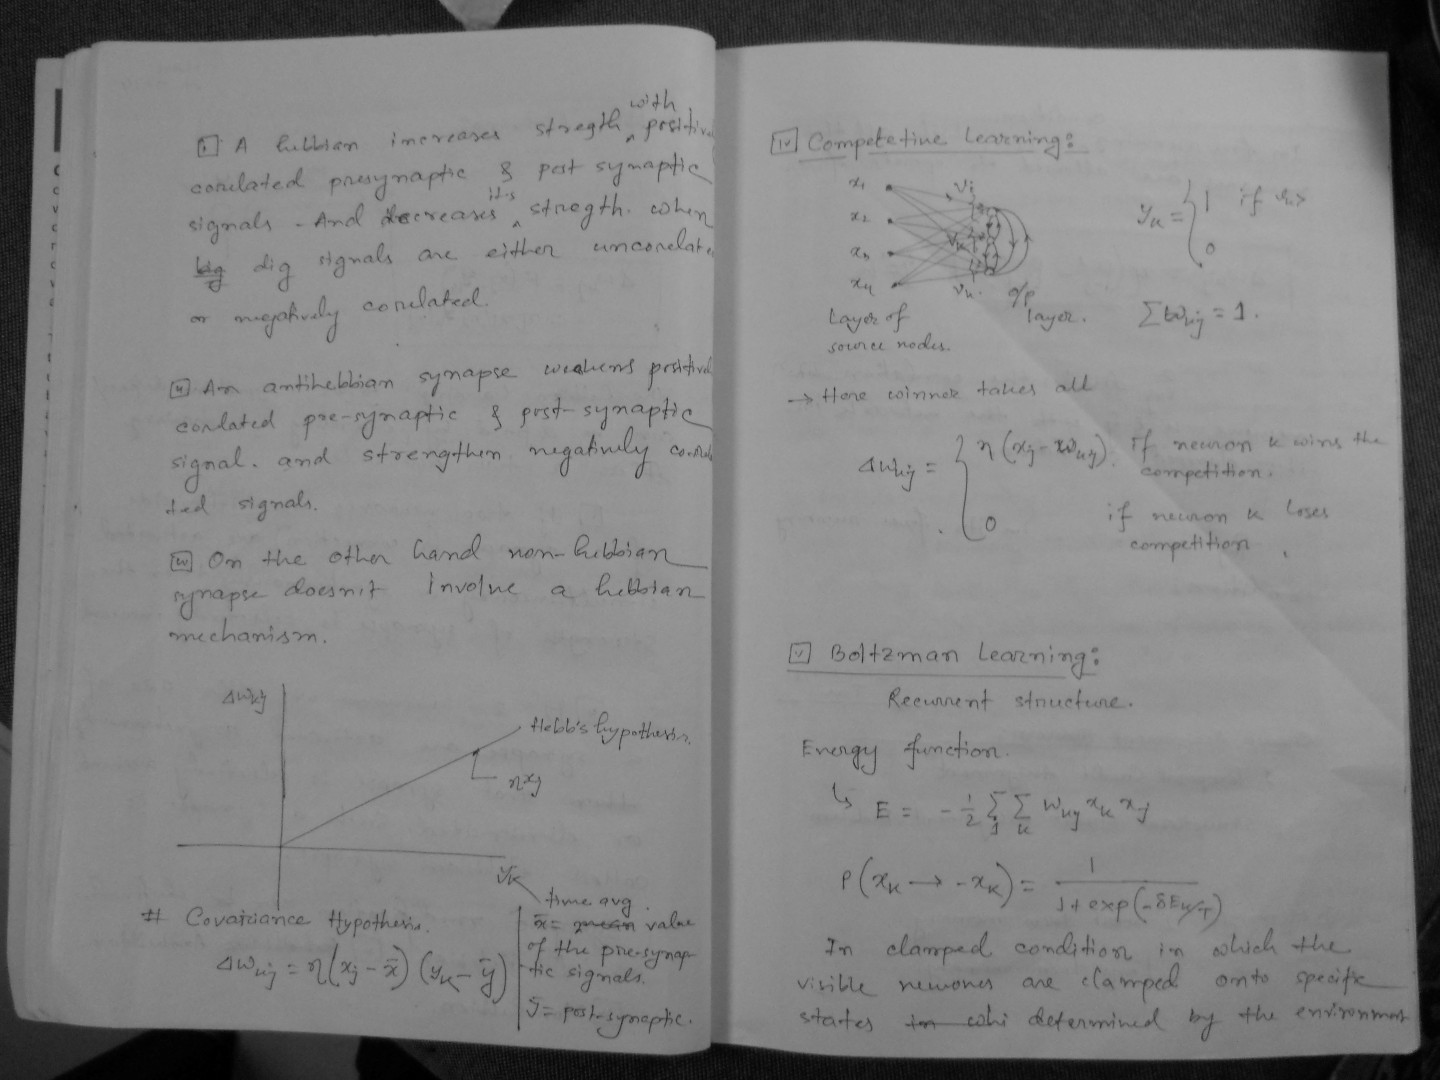 i A hebbian increases stregth with positive
corelated presynaptic & post synaptic
signals. And decreases it's stregth. when
big dig signals are either uncorelate
or negatively corelated.
ii An antihebbian synapse weakens positivel
corelated pre-synaptic & post-synaptic
signal. and strengthen negatively corela
ted signals.
iii On the other hand non-hebbian
synapse doesn't involve a hebbian
mechanism.
Δwkj
Hebb's hypothesis.
ηxj
yk
# Covariance Hypothesis.
Δwkj = η(xj - x̄) (yk - ȳ)
time avg.
x̄ = mean value
of the pre-synap-
tic signals.
ȳ = post-synaptic.
iv Competetive Learning:
x1
x2
x3
x4
vi
vk
vk.
Layer of
source nodes.
o/p
layer.
yk = { 1 if vk>
0
Σwkj = 1.
→ Here winner takes all
Δwkj = { η(xj - wkj). if neuron k wins the
competition.
0 if neuron k loses
competition
v Boltzman Learning:
Recurrent structure.
Energy function.
↳ E = - 1/2 Σj Σk wkj xk xj
P(xk → -xk) = 1 / 1 + exp(-δEk/T)
In clamped condition in which the
visible neurones are clamped onto specific
states in whi determined by the environment